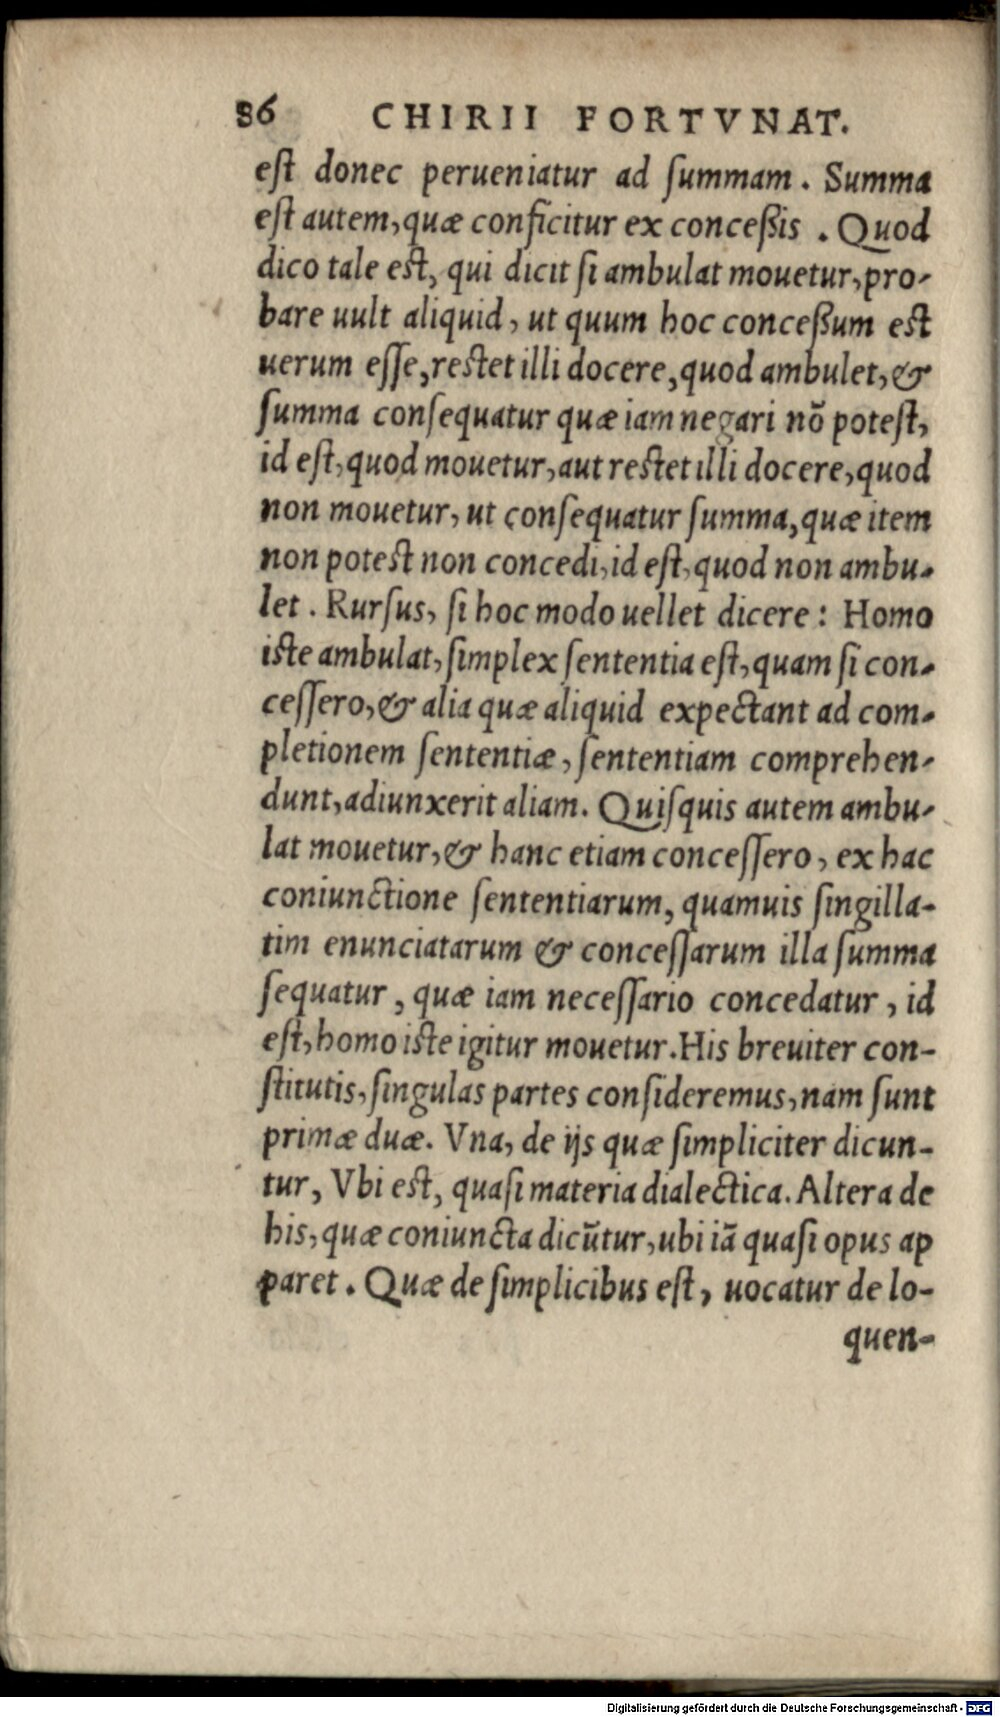 86 CHIRII FORTVNAT.
eſt donec perueniatur ad ſummam. Summa
eſt autem, quæ conficitur ex conceßis. Quod
dico tale eſt, qui dicit ſi ambulat mouetur, pro-
bare uult aliquid, ut quum hoc conceßum eſt
uerum eſſe, reſtet illi docere, quod ambulet, &
ſumma conſequatur quæ iam negari nō poteſt,
id eſt, quod mouetur, aut reſtet illi docere, quod
non mouetur, ut conſequatur ſumma, quæ item
non poteſt non concedi, id eſt, quod non ambu-
let. Rurſus, ſi hoc modo uellet dicere: Homo
iſte ambulat, ſimplex ſententia eſt, quam ſi con-
ceſſero, & alia quæ aliquid expectant ad com-
pletionem ſententiæ, ſententiam comprehen-
dunt, adiunxerit aliam. Quiſquis autem ambu-
lat mouetur, & hanc etiam conceſſero, ex hac
coniunctione ſententiarum, quamuis ſingilla-
tim enunciatarum & conceſſarum illa ſumma
ſequatur, quæ iam neceſſario concedatur, id
eſt, homo iſte igitur mouetur. His breuiter con-
ſtitutis, ſingulas partes conſideremus, nam ſunt
primæ duæ. Vna, de ijs quæ ſimpliciter dicun-
tur, Vbi eſt, quaſi materia dialectica. Altera de
his, quæ coniuncta dicūtur, ubi iā quaſi opus ap
paret. Quæ de ſimplicibus eſt, uocatur de lo-
quen-
Digitalisierung gefördert durch die Deutsche Forschungsgemeinschaft - DFG